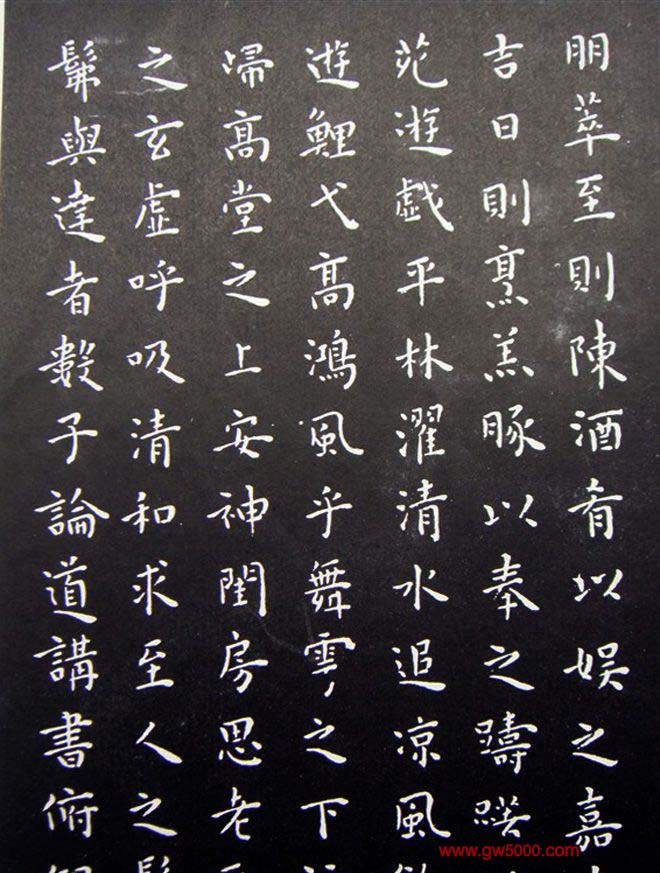 朋萃至則陳酒肴以娛之嘉
吉日則烹羔豚以奉之躊躇
苑遊戲平林濯清水追凉風
遊鯉弋高鴻風乎舞雩之下
歸高堂之上安神閨房思老
之玄虛呼吸清和求至人之髣
髴與達者數子論道講書俯
www.gw5000.com